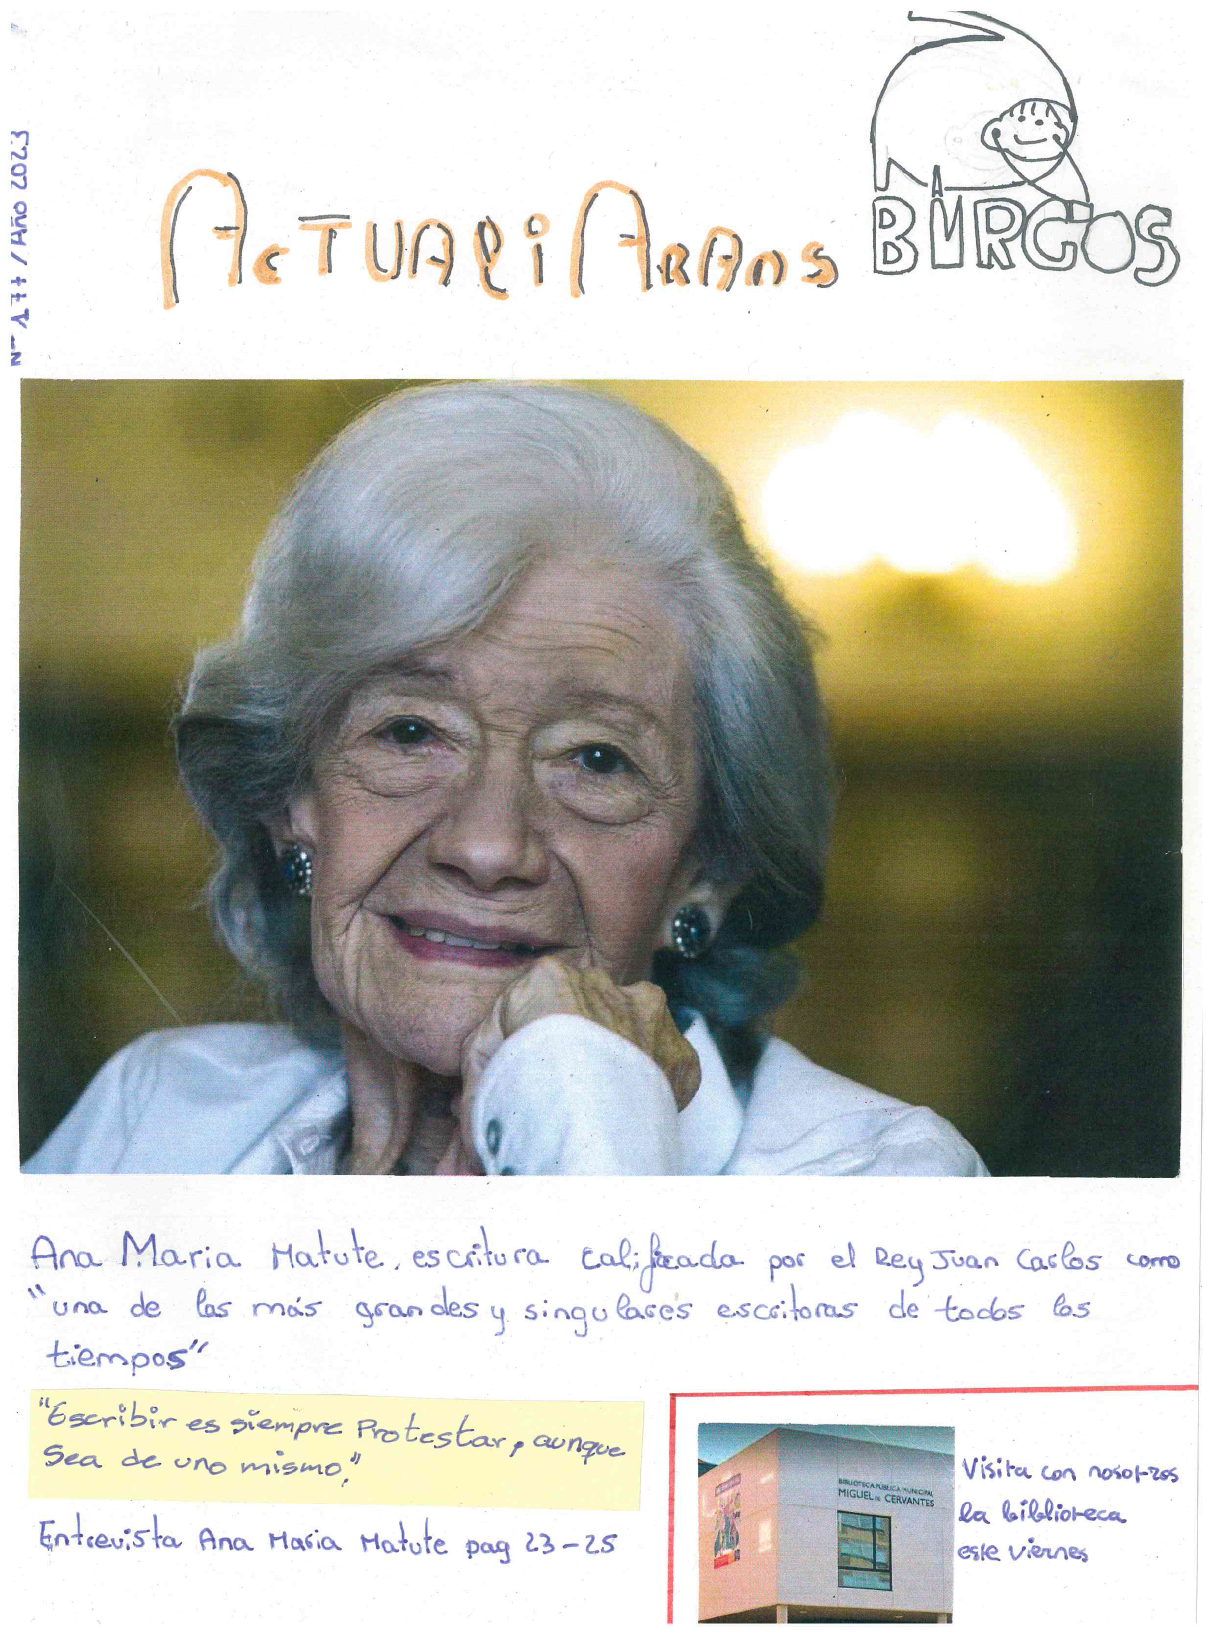 Nº 177 / AÑO 2023
ACTUALiARANS
BURGOS
Ana Maria Matute, escritura calificada por el Rey Juan Carlos como
"una de las más grandes y singulares escritoras de todos los
tiempos"
"Escribir es siempre Protestar, aunque
Sea de uno mismo."
Entrevista Ana Maria Matute pag 23-25
BIBLIOTECA PÚBLICA MUNICIPAL
MIGUEL DE CERVANTES
Visita con nosotros
la biblioteca
este viernes